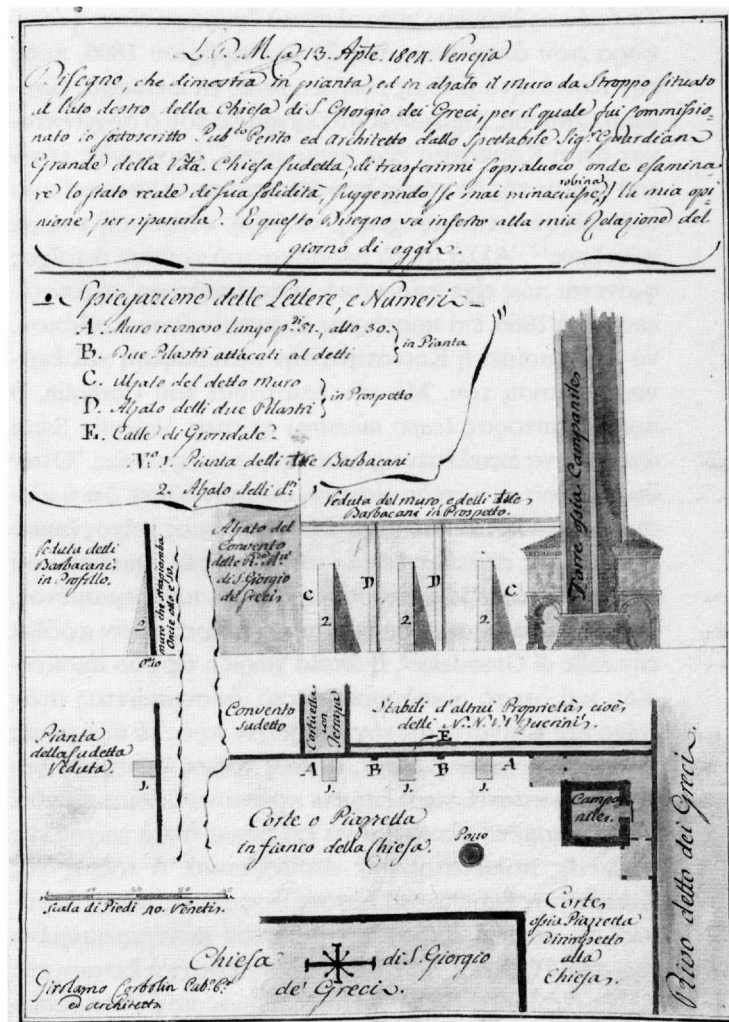 L. D. M. @ 13. Aple. 1804. Venezia
Disegno, che dimostra in pianta, ed in alzato il muro da Stroppo situato
al lato destro della Chiesa di S. Giorgio dei Greci, per il quale fui Commissio=
nato io sottoscritto Pub.co Perito ed Architetto dallo Spettabile Sig.r Guardian
Grande della Chiesa sudetta, di trasferirmi sopraluoco onde esamina=
re lo stato reale di sua solidità, suggerendo, se mai minaciasse robina, la mia opi=
nione per ripararla. E questo Disegno va inserto alla mia Relazione del
giorno di oggi.
Spiegazione delle Lettere e Numeri
A. Muro rovinoso lungo p.di 51., alto 30.
B. Due Pilastri attacati al detti
in Pianta
C. Alzato del detto muro
D. Alzato delli due Pilastri
in Prospetto
E. Calle di Grondale
N.o 1. Pianta delli tre Barbacani
2. Alzato delli d.ti
Veduta del muro, e delli tre
Barbacani in Prospetto.
Torre ossia Campanile
Veduta delli
Barbacani
in Profillo.
muro che strapiomba
Oncie otto e 1/2.
Alzato del
Convento
delle
di S. Giorgio
de' Greci
C D D C
2 2 2 2
Convento
sudetto
Corticella
con
Terrazza
Stabili d'altrui Proprietà, cioè
delli N. N. V. V. Querini.
E
Pianta
della sudetta
Veduta.
A B B A
1. 1. 1. 1.
Corte o Piazzetta
in fianco della Chiesa.
Pozzo
Campa
nile.
Rivo detto dei Greci
Scala di Piedi 40. Veneti.
Corte,
ossia Piazzetta
dirimpetto
alla
Chiesa.
Chiesa di S. Giorgio
de' Greci.
Girolamo
ed Architetto